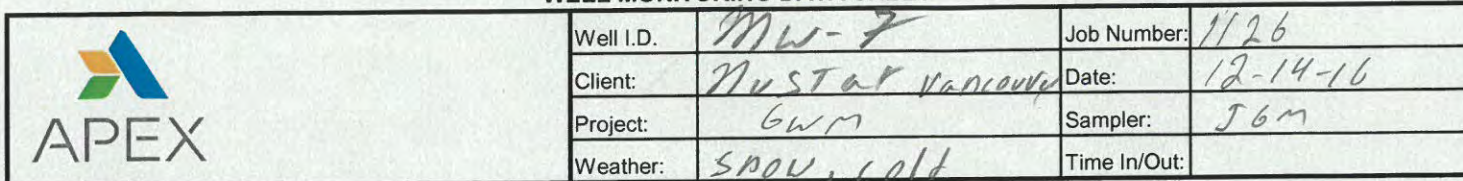 APEX
Well I.D. MW-7 Job Number: 1126
Client: NuStar Vancouver Date: 12-14-16
Project: GWM Sampler: JGM
Weather: snow, cold Time In/Out: